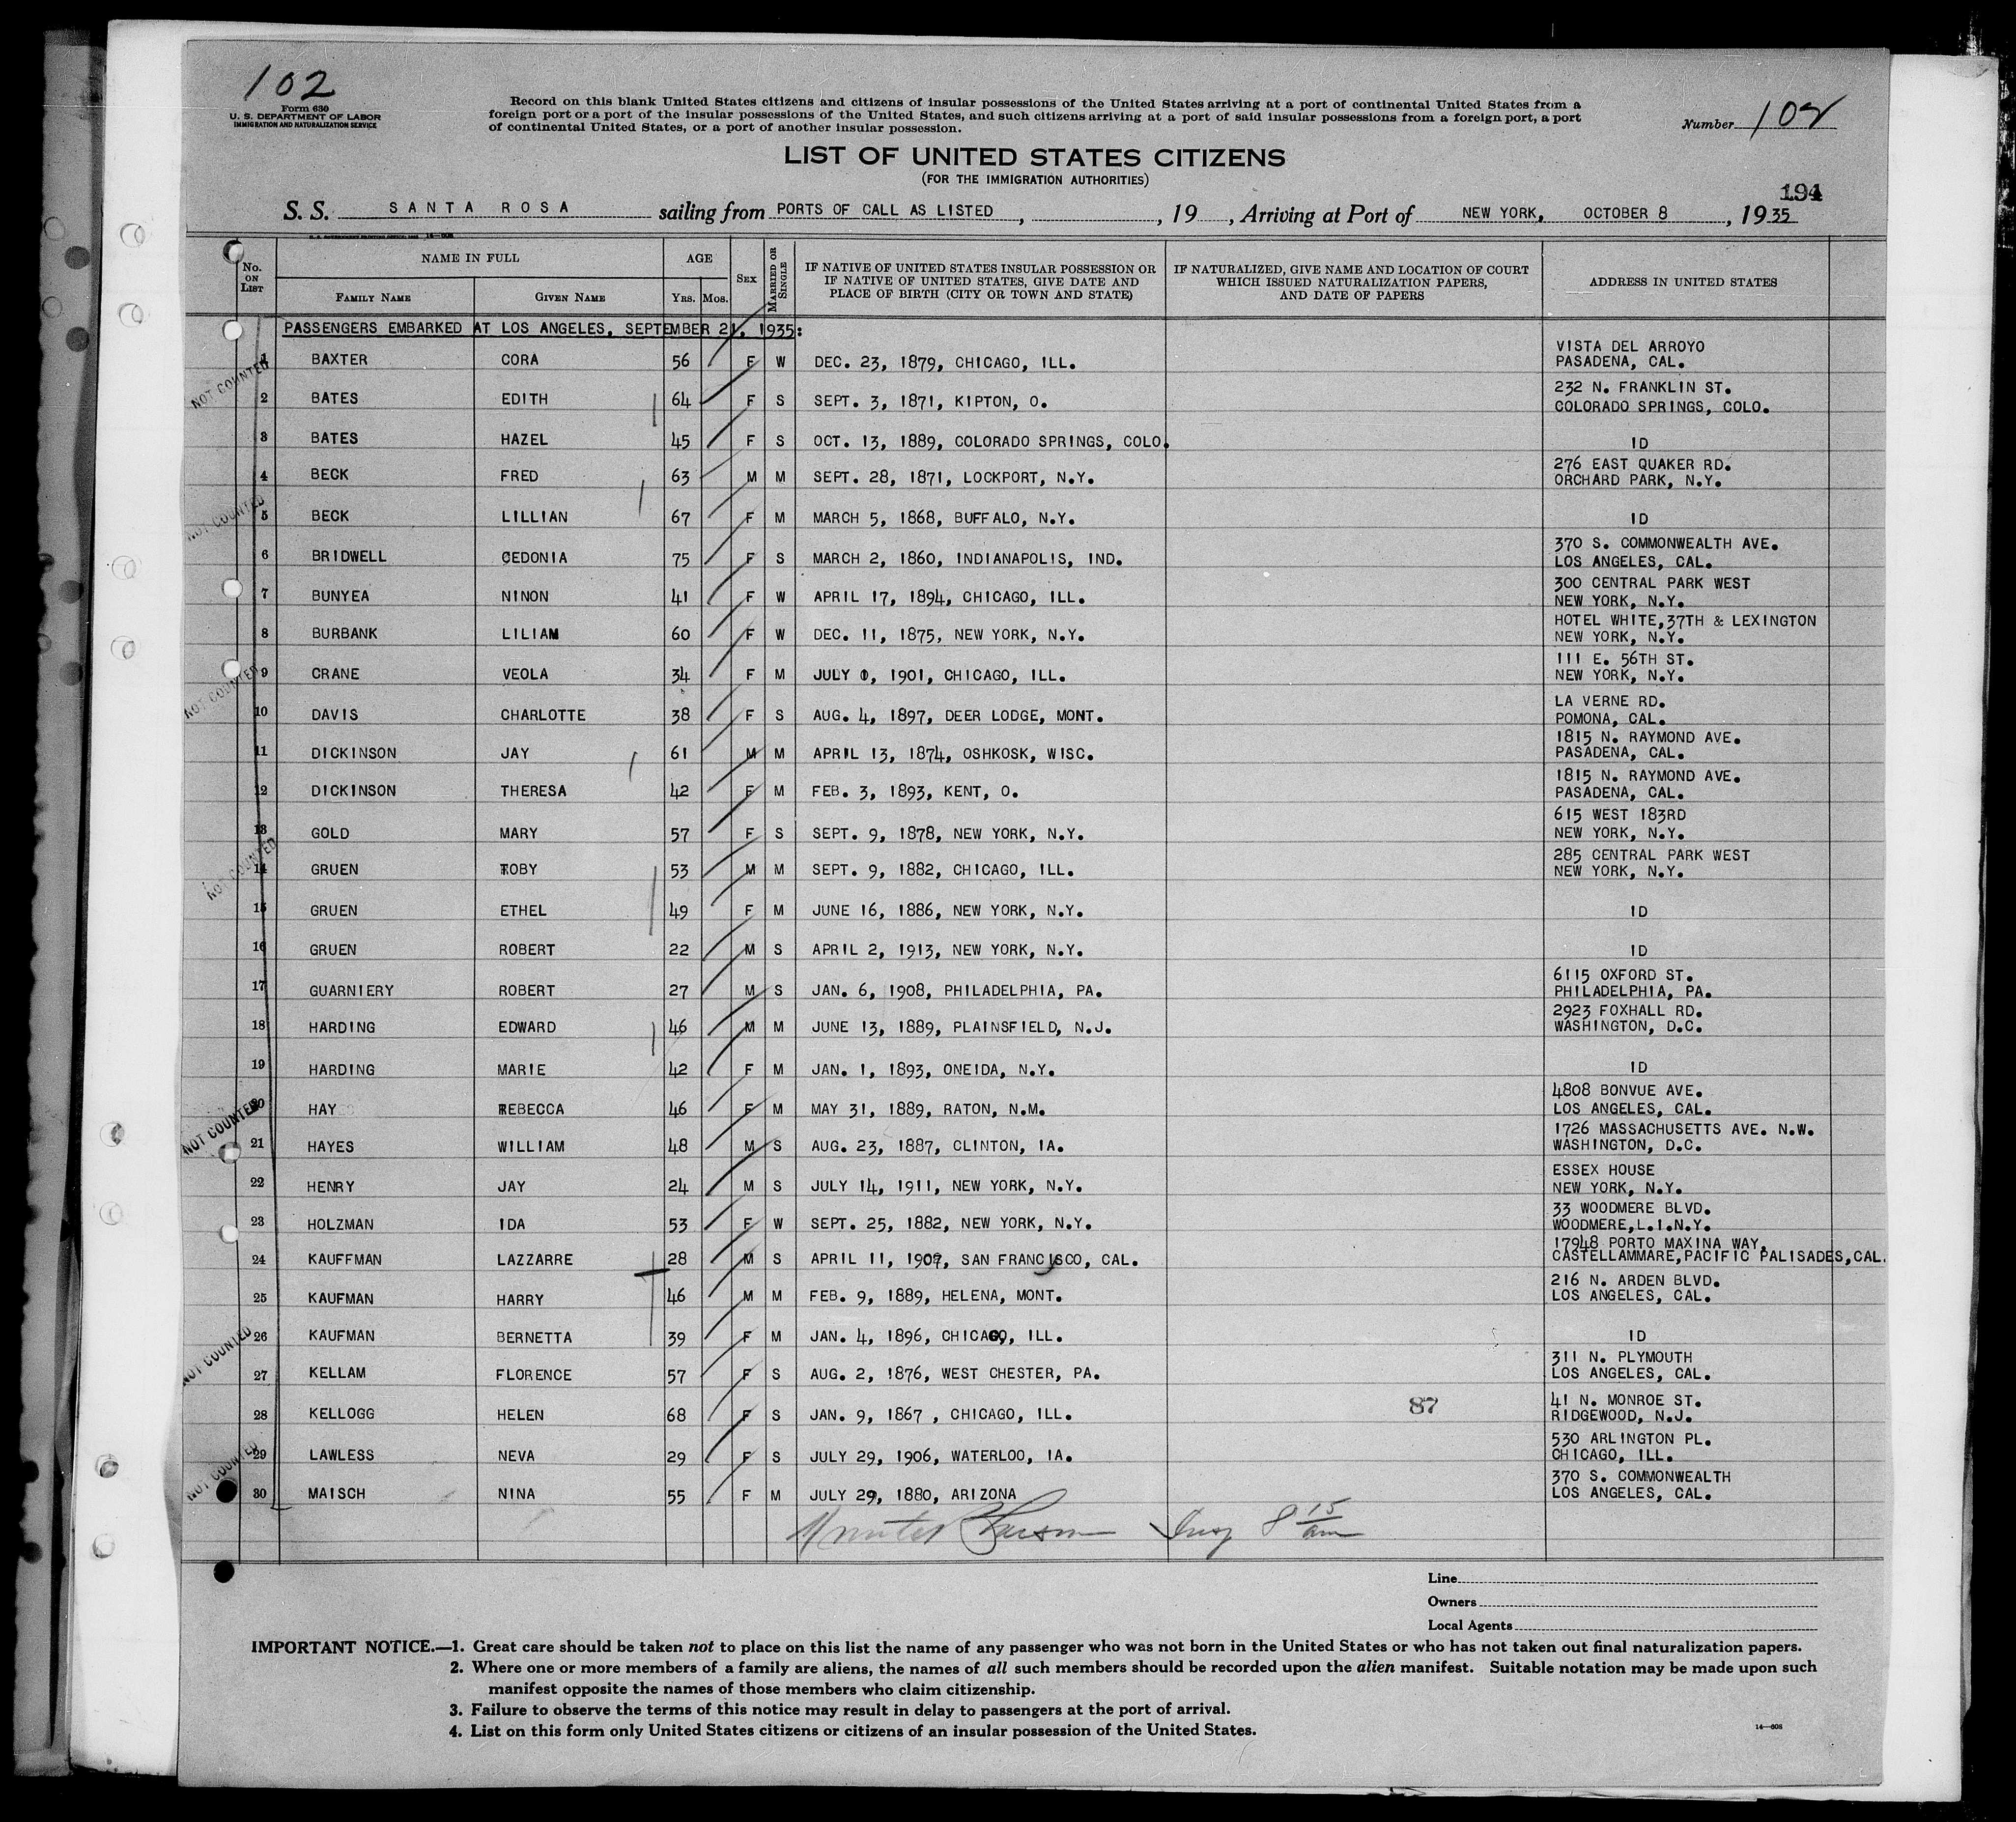 102
Form 630
U. S. DEPARTMENT OF LABOR
IMMIGRATION AND NATURALIZATION SERVICE
Record on this blank United States citizens and citizens of insular possessions of the United States arriving at a port of continental United States from a
foreign port or a port of the insular possessions of the United States, and such citizens arriving at a port of said insular possessions from a foreign port, a port
of continental United States, or a port of another insular possession.
Number 102
LIST OF UNITED STATES CITIZENS
(FOR THE IMMIGRATION AUTHORITIES)
194
S. S. SANTA ROSA sailing from PORTS OF CALL AS LISTED, , 19 , Arriving at Port of NEW YORK, OCTOBER 8, 1935
No. ON LIST NAME IN FULL FAMILY NAME GIVEN NAME AGE YRS. MOS. SEX MARRIED OR SINGLE IF NATIVE OF UNITED STATES INSULAR POSSESSION OR IF NATIVE OF UNITED STATES, GIVE DATE AND PLACE OF BIRTH (CITY OR TOWN AND STATE) IF NATURALIZED, GIVE NAME AND LOCATION OF COURT WHICH ISSUED NATURALIZATION PAPERS, AND DATE OF PAPERS ADDRESS IN UNITED STATES
PASSENGERS EMBARKED AT LOS ANGELES, SEPTEMBER 21, 1935:
1 BAXTER CORA 56 F W DEC. 23, 1879, CHICAGO, ILL. VISTA DEL ARROYO PASADENA, CAL.
NOT COUNTED
2 BATES EDITH 64 F S SEPT. 3, 1871, KIPTON, O. 232 N. FRANKLIN ST. COLORADO SPRINGS, COLO.
3 BATES HAZEL 45 F S OCT. 13, 1889, COLORADO SPRINGS, COLO. ID
4 BECK FRED 63 M M SEPT. 28, 1871, LOCKPORT, N.Y. 276 EAST QUAKER RD. ORCHARD PARK, N.Y.
NOT COUNTED
5 BECK LILLIAN 67 F M MARCH 5, 1868, BUFFALO, N.Y. ID
6 BRIDWELL CEDONIA 75 F S MARCH 2, 1860, INDIANAPOLIS, IND. 370 S. COMMONWEALTH AVE. LOS ANGELES, CAL.
7 BUNYEA NINON 41 F W APRIL 17, 1894, CHICAGO, ILL. 300 CENTRAL PARK WEST NEW YORK, N.Y.
8 BURBANK LILIAM 60 F W DEC. 11, 1875, NEW YORK, N.Y. HOTEL WHITE, 37TH & LEXINGTON NEW YORK, N.Y.
9 CRANE VEOLA 34 F M JULY , 1901, CHICAGO, ILL. 111 E. 56TH ST. NEW YORK, N.Y.
NOT COUNTED
10 DAVIS CHARLOTTE 38 F S AUG. 4, 1897, DEER LODGE, MONT. LA VERNE RD. POMONA, CAL.
11 DICKINSON JAY 61 M M APRIL 13, 1874, OSHKOSK, WISC. 1815 N. RAYMOND AVE. PASADENA, CAL.
12 DICKINSON THERESA 42 F M FEB. 3, 1893, KENT, O. 1815 N. RAYMOND AVE. PASADENA, CAL.
13 GOLD MARY 57 F S SEPT. 9, 1878, NEW YORK, N.Y. 615 WEST 183RD NEW YORK, N.Y.
NOT COUNTED
14 GRUEN TOBY 53 M M SEPT. 9, 1882, CHICAGO, ILL. 285 CENTRAL PARK WEST NEW YORK, N.Y.
15 GRUEN ETHEL 49 F M JUNE 16, 1886, NEW YORK, N.Y. ID
16 GRUEN ROBERT 22 M S APRIL 2, 1913, NEW YORK, N.Y. ID
17 GUARNIERY ROBERT 27 M S JAN. 6, 1908, PHILADELPHIA, PA. 6115 OXFORD ST. PHILADELPHIA, PA.
18 HARDING EDWARD 46 M M JUNE 13, 1889, PLAINSFIELD, N.J. 2923 FOXHALL RD. WASHINGTON, D.C.
19 HARDING MARIE 42 F M JAN. 1, 1893, ONEIDA, N.Y. ID
20 HAY REBECCA 46 F M MAY 31, 1889, RATON, N.M. 4808 BONVUE AVE. LOS ANGELES, CAL.
NOT COUNTED
21 HAYES WILLIAM 48 M S AUG. 23, 1887, CLINTON, IA. 1726 MASSACHUSETTS AVE. N.W. WASHINGTON, D.C.
22 HENRY JAY 24 M S JULY 14, 1911, NEW YORK, N.Y. ESSEX HOUSE NEW YORK, N.Y.
23 HOLZMAN IDA 53 F W SEPT. 25, 1882, NEW YORK, N.Y. 33 WOODMERE BLVD. WOODMERE, L.I.N.Y.
24 KAUFFMAN LAZZARRE 28 M S APRIL 11, 1907, SAN FRANCISCO, CAL. 17948 PORTO MAXINA WAY, CASTELLAMMARE, PACIFIC PALISADES, CAL.
25 KAUFMAN HARRY 46 M M FEB. 9, 1889, HELENA, MONT. 216 N. ARDEN BLVD. LOS ANGELES, CAL.
26 KAUFMAN BERNETTA 39 F M JAN. 4, 1896, CHICAGO, ILL. ID
NOT COUNTED
27 KELLAM FLORENCE 57 F S AUG. 2, 1876, WEST CHESTER, PA. 311 N. PLYMOUTH LOS ANGELES, CAL.
28 KELLOGG HELEN 68 F S JAN. 9, 1867 , CHICAGO, ILL. 87 41 N. MONROE ST. RIDGEWOOD, N.J.
29 LAWLESS NEVA 29 F S JULY 29, 1906, WATERLOO, IA. 530 ARLINGTON PL. CHICAGO, ILL.
NOT COUNTED
30 MAISCH NINA 55 F M JULY 29, 1880, ARIZONA 370 S. COMMONWEALTH LOS ANGELES, CAL.
Insp 8 15 am
Line
Owners
Local Agents
IMPORTANT NOTICE.—1. Great care should be taken not to place on this list the name of any passenger who was not born in the United States or who has not taken out final naturalization papers.
2. Where one or more members of a family are aliens, the names of all such members should be recorded upon the alien manifest. Suitable notation may be made upon such
manifest opposite the names of those members who claim citizenship.
3. Failure to observe the terms of this notice may result in delay to passengers at the port of arrival.
4. List on this form only United States citizens or citizens of an insular possession of the United States.
14—608